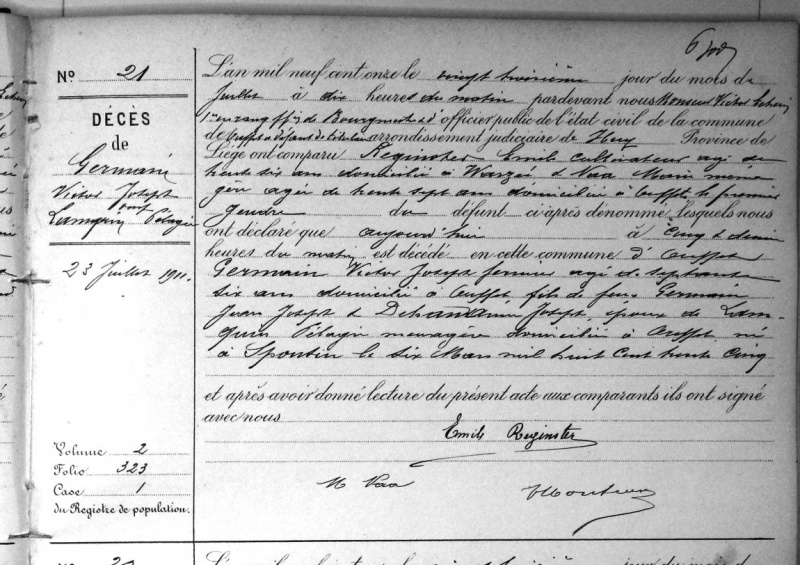 N° 21
DÉCÈS
de
Germain
Victor Joseph
Lamquin Pélagie
23 Juillet 1911.
Volume 2
Folio 323
Case 1
du Registre de population.
L'an mil neuf cent onze le vingt troisième jour du mois de
Juillet à dix heures du matin pardevant nous Monsieur Victor
officier public de l'état civil de la commune
arrondissement judiciaire de Huy Province de
Liége ont comparu Reginster Emile cultivateur agé de
trente six ans domicilié à Warzée & Naa Marie ména
gère agée de trente sept ans domiciliée à Ouffet le premier
gendre du défunt ci après dénommé lesquels nous
ont déclaré que aujourd'hui à cinq & demie
heures du matin est décédé en cette commune d'Ouffet
Germain Victor Joseph fermier agé de septante
six ans domicilié à Ouffet fils de feus Germain
Jean Joseph & Joseph, époux de Lam-
quin Pélagie ménagère domiciliée à Ouffet, né
à Spontin le six Mars mil huit cent trente cinq
et après avoir donné lecture du présent acte aux comparants ils ont signé
avec nous
Emile Reginster
M Naa
L'an mil
jour du mois de